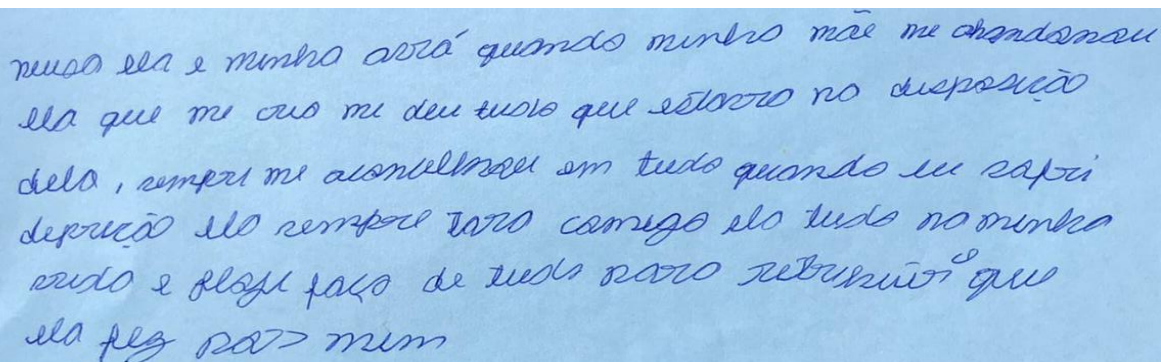 neusa ela e minha avó quando minha mãe me abandonou
ela que me crio me deu tudo que estava no disposição
dela, sempre me aconselhou em tudo quando eu sofri
depreção ela sempre tava comigo ela tudo na minha
vida e hoje faço de tudo para retribuir o que
ela fez por mim